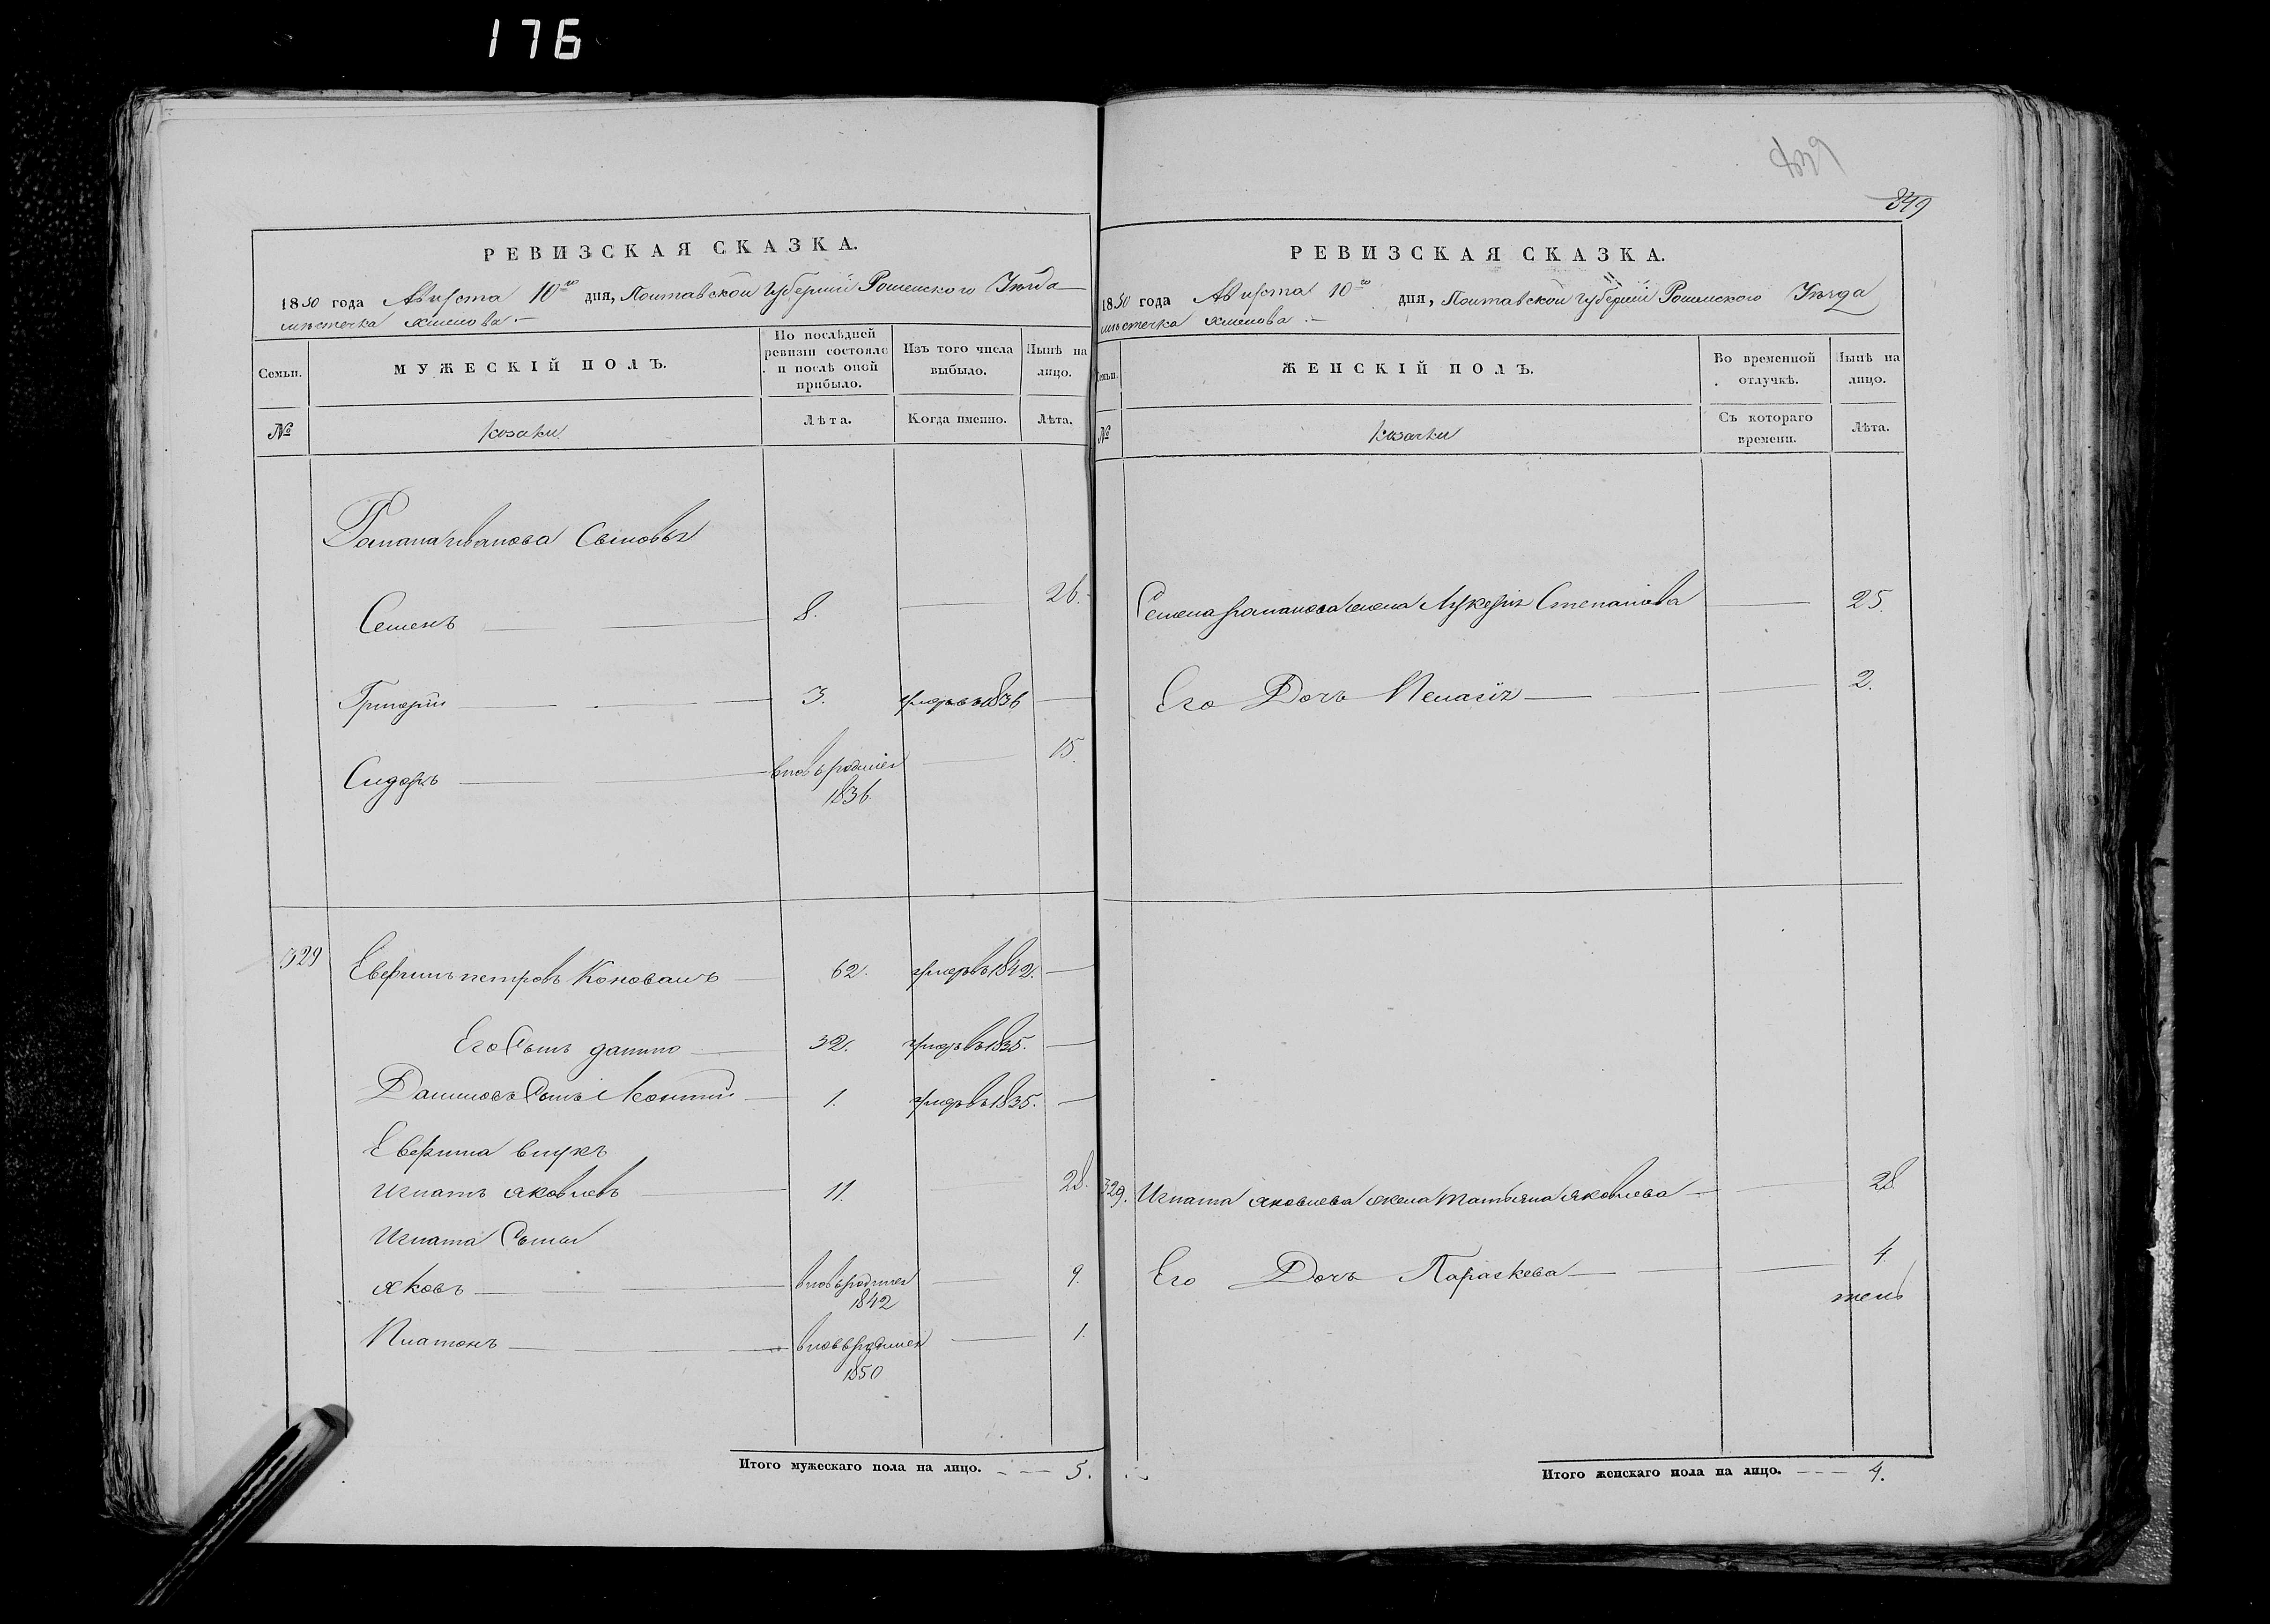 176
439
349
РЕВИЗСКАЯ СКАЗКА.
1850 года Августа 10го дня, Полтавской губернии Роменского Уезда
местечка Хмелова.
Семьи.
МУЖЕСКІЙ ПОЛЪ.
По послѣдней ревизіи состояло и послѣ оной прибыло.
Изъ того числа выбыло.
Нынѣ на лицо.
№
козаки
Лѣта.
Когда именно.
Лѣта.
Романа Иванова Сыновья
Семенъ 8. 26.
Григорій 3. умеръ въ 1836
Сидоръ вновь родился 15.
1836
329 Евергинъ петровъ Коновалъ 62. умеръ въ 1842.
Его Сынъ данило 32. умеръ въ 1835.
Даниловъ Сынъ 1. умеръ въ 1835.
внукъ
Игнатъ яковлевъ 11. 28.
Игната Сыны
яковъ вновь родился 9.
1842
Платонъ вновь родился 1.
1850
Итого мужескаго пола на лицо. 5.
РЕВИЗСКАЯ СКАЗКА.
1850 года Августа 10го дня, Полтавской губерніи Роменского Уезда
местечка Хмелова.
Семьи.
ЖЕНСКІЙ ПОЛЪ.
Во временной отлучкѣ.
Нынѣ на лицо.
№
козачки
Съ котораго времени.
Лѣта.
Семена романова жена Лукерія Степанова 25.
Его Дочь Пелагія 2.
329. Игната яковлева жена татьяна яковлева 28
Его Дочь Параскева 4
Итого женскаго пола на лицо. 4.